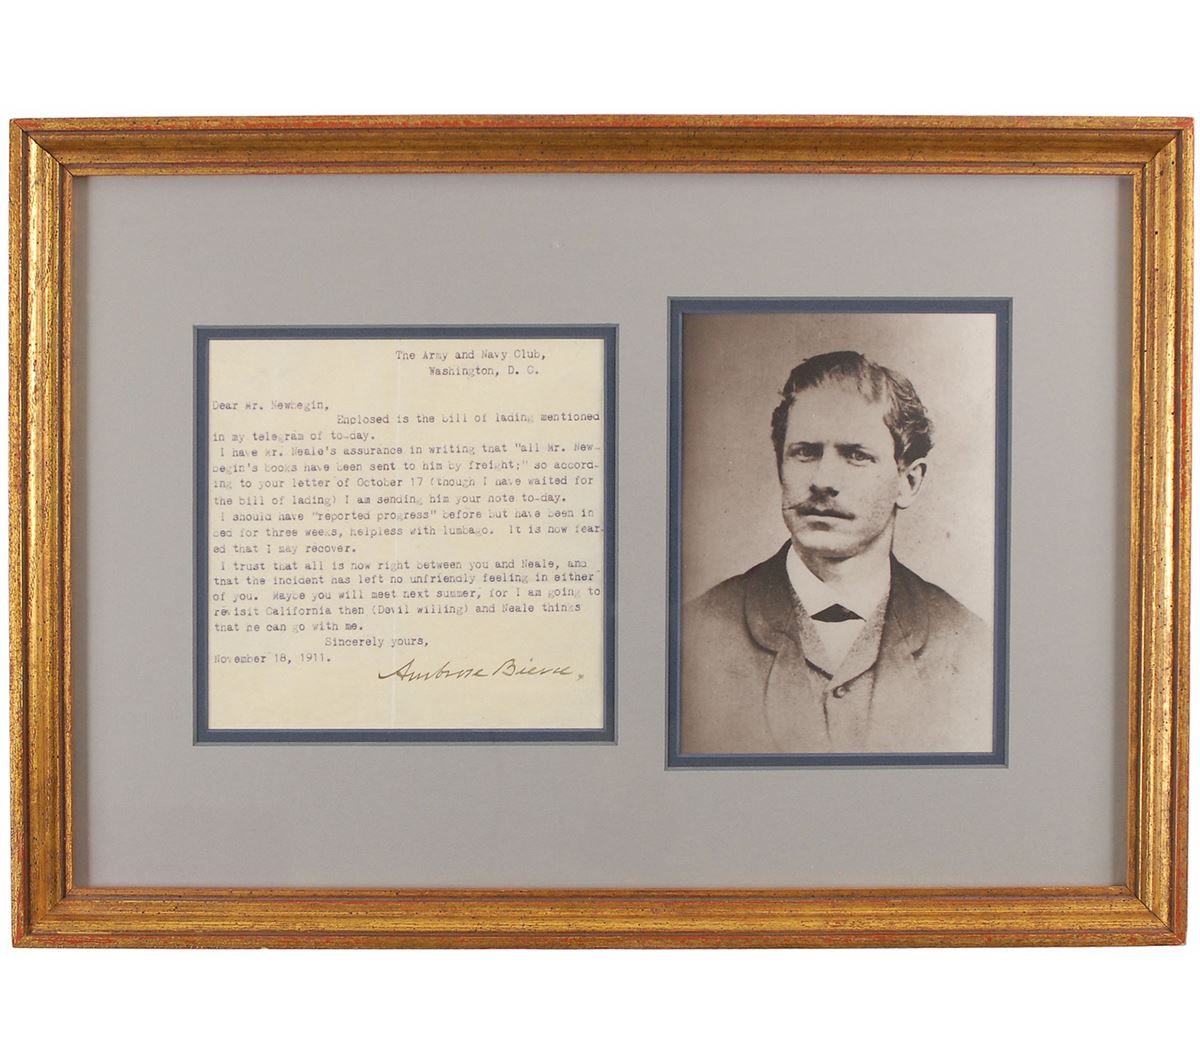 The Army and Navy Club,
Washington, D. C.
Dear Mr. Newbegin,
Enclosed is the bill of lading mentioned
in my telegram of to-day.
I have Mr. Neale's assurance in writing that "all Mr. New-
begin's books have been sent to him by freight;" so accord-
ing to your letter of October 17 (though I have waited for
the bill of lading) I am sending him your note to-day.
I should have "reported progress" before but have been in
bed for three weeks, helpless with lumbago. It is now fear-
ed that I may recover.
I trust that all is now right between you and Neale, and
that the incident has left no unfriendly feeling in either
of you. Maybe you will meet next summer, for I am going to
revisit California then (Devil willing) and Neale thinks
that he can go with me.
Sincerely yours,
November 18, 1911.
Ambrose Bierce.